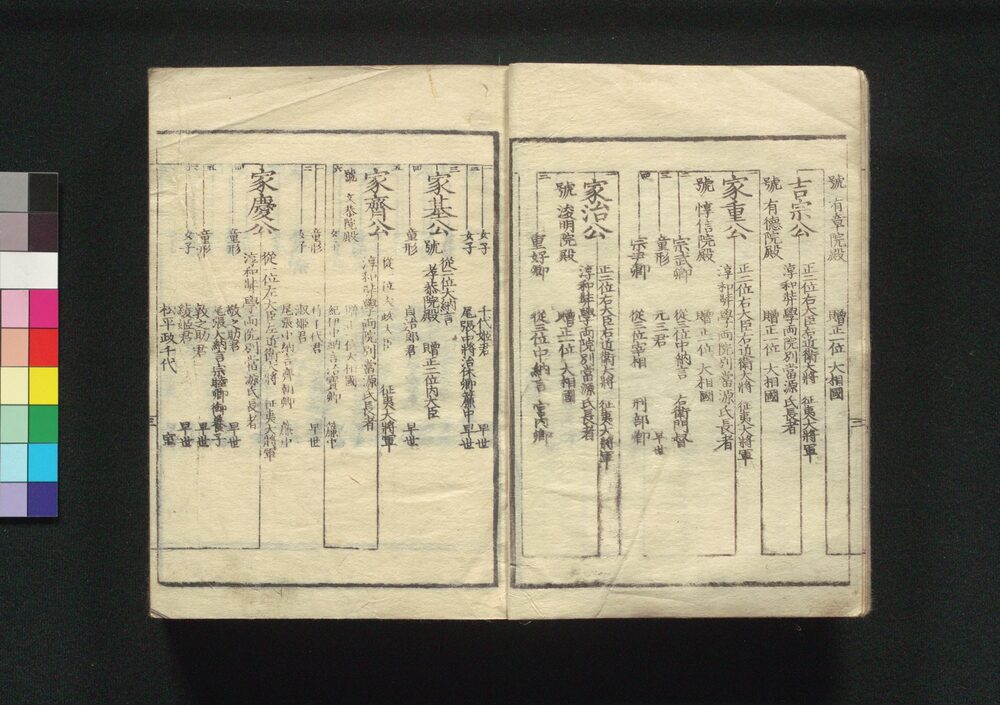 號 有章院殿 贈正一位 大相國
吉宗公 正二位右大臣右近衛大將 征夷大將軍
淳和奬學両院別當源氏長者
號 有德院殿 贈正一位 大相國
家重公 正二位右大臣右近衛大將 征夷大將軍
淳和奬學両院別當源氏長者
號 惇信院殿 贈正一位 大相國
二 宗武卿 從三位中納言 右衛門督
三 童形 元三君 早世
四 宗尹卿 從三位宰相 刑部卿
家治公 正二位右大臣右近衛大將 征夷大將軍
淳和奬學両院別當源氏長者
號 浚明院殿 贈正一位 大相國
二 重好卿 從三位中納言 宮內卿
三
女子 千代姬君 早世
女子 尾張中將治休卿簾中 早世
家基公 從二位大納言
號 孝恭院殿 贈正二位內大臣
童形 貞治郎君 早世
家齊公 從一位太政大臣 征夷大將軍
淳和奬學両院別當源氏長者
號 文恭院殿 贈正一位大相國
女子 紀伊中納言治寶卿 簾中
童形 竹千代君 早世
女子 淑姬君
尾張中納言齊朝卿 簾中
家慶公 從一位左大臣左近衛大將 征夷大將軍
淳和奬學両院別當源氏長者
童形 敬之助君 早世
尾張大納言宗睦卿御養子
童形 敦之助君 早世
女子 綾姬君 早世
松平政千代 室
三